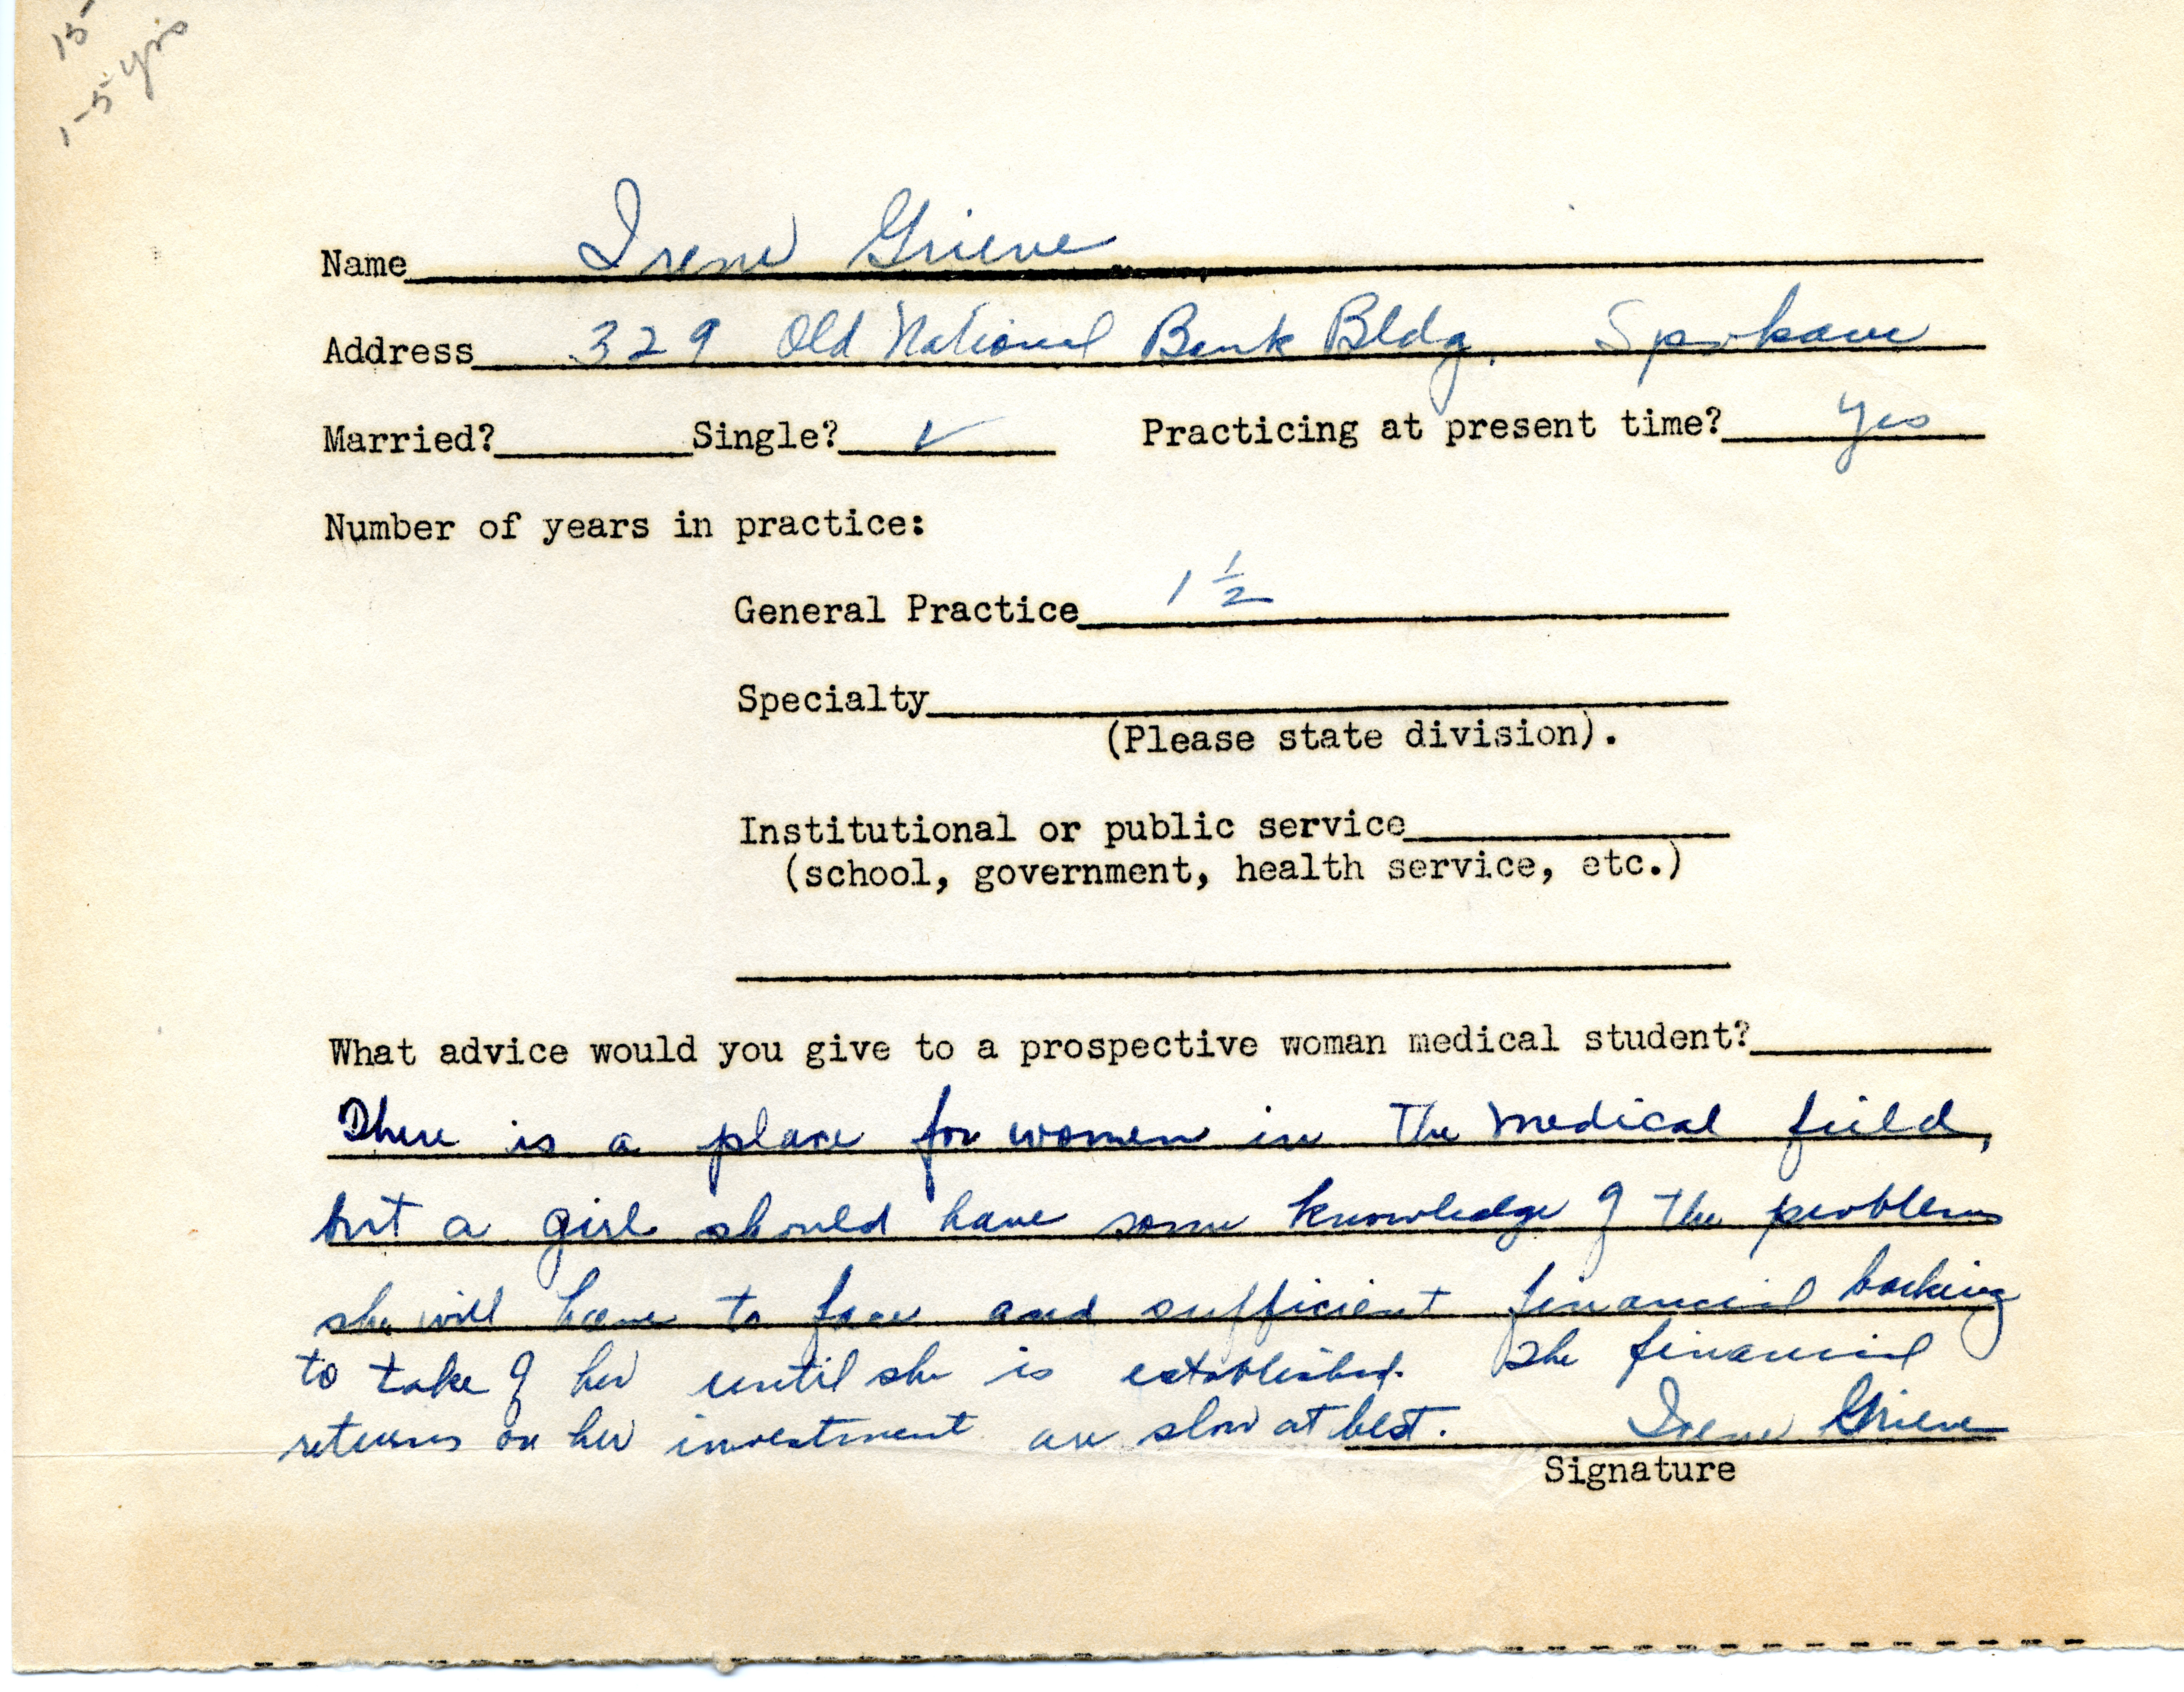 15-
1-5 yrs
Name Irene Grieve
Address 329 Old National Bank Bldg. Spokane
Married? Single? ✓ Practicing at present time? Yes
Number of years in practice:
General Practice 1 1/2
Specialty
(Please state division).
Institutional or public service
(school, government, health service, etc.)
What advice would you give to a prospective woman medical student?
There is a place for women in the medical field,
but a girl should have some knowledge of the problems
she will have to face and sufficient financial backing
to take of her until she is established. The financial
returns on her investment are slow at best. Irene Grieve
Signature